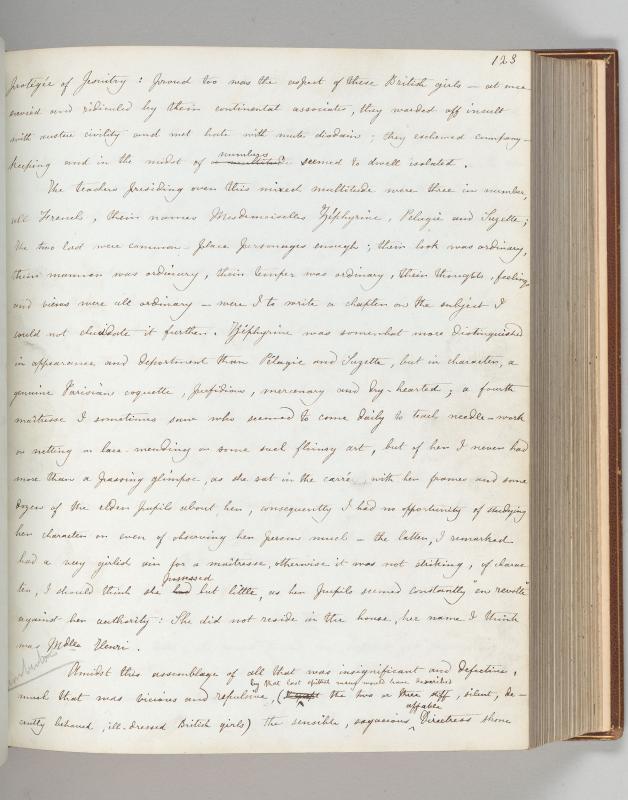 123
protégée of Jesuitry : proud too was the aspect of these British girls — at once
envied and ridiculed by their continental associates, they warded off insult
with austere civility and met hate with mute disdain ; they eschewed company-
keeping and in the midst of numbers seemed to dwell isolated .
The teachers presiding over this mixed multitude were three in number,
all French, their names Mesdemoiselles Zéphyrine, Pelagie and Suzette ;
the two last were common-place personages enough ; their look was ordinary,
their manner was ordinary, their temper was ordinary, their thoughts, feelings
and views were all ordinary — were I to write a chapter on the subject I
could not elucidate it further. Zéphyrine was somewhat more distinguished
in appearance and deportment than Pélagie and Suzette, but in character, a
genuine Parisian coquette, perfidious, mercenary and dry-hearted ; a fourth
maîtresse I sometimes saw who seemed to come daily to teach needle-work
or netting or lace-mending or some such flimsy art, but of her I never had
more than a passing glimpse, as she sat in the carré with her frames and some
dozen of the elder pupils about her, consequently I had no opportunity of studying
her character or even of observing her person much — the latter, I remarked
had a very girlish air for a maîtresse, otherwise it was not striking, of charac
ter, I should think she possessed but little, as her pupils seemed constantly "en revolte"
against her authority : She did not reside in the house, her name I think
was Mdlle Henri .
Amidst this assemblage of all that was insignificant and defective,
much that was vicious and repulsive, (by that last epithet many would have described
the two or three stiff, silent, de-
cently behaved, ill-dressed British girls) the sensible, sagacious, affable Directress shone